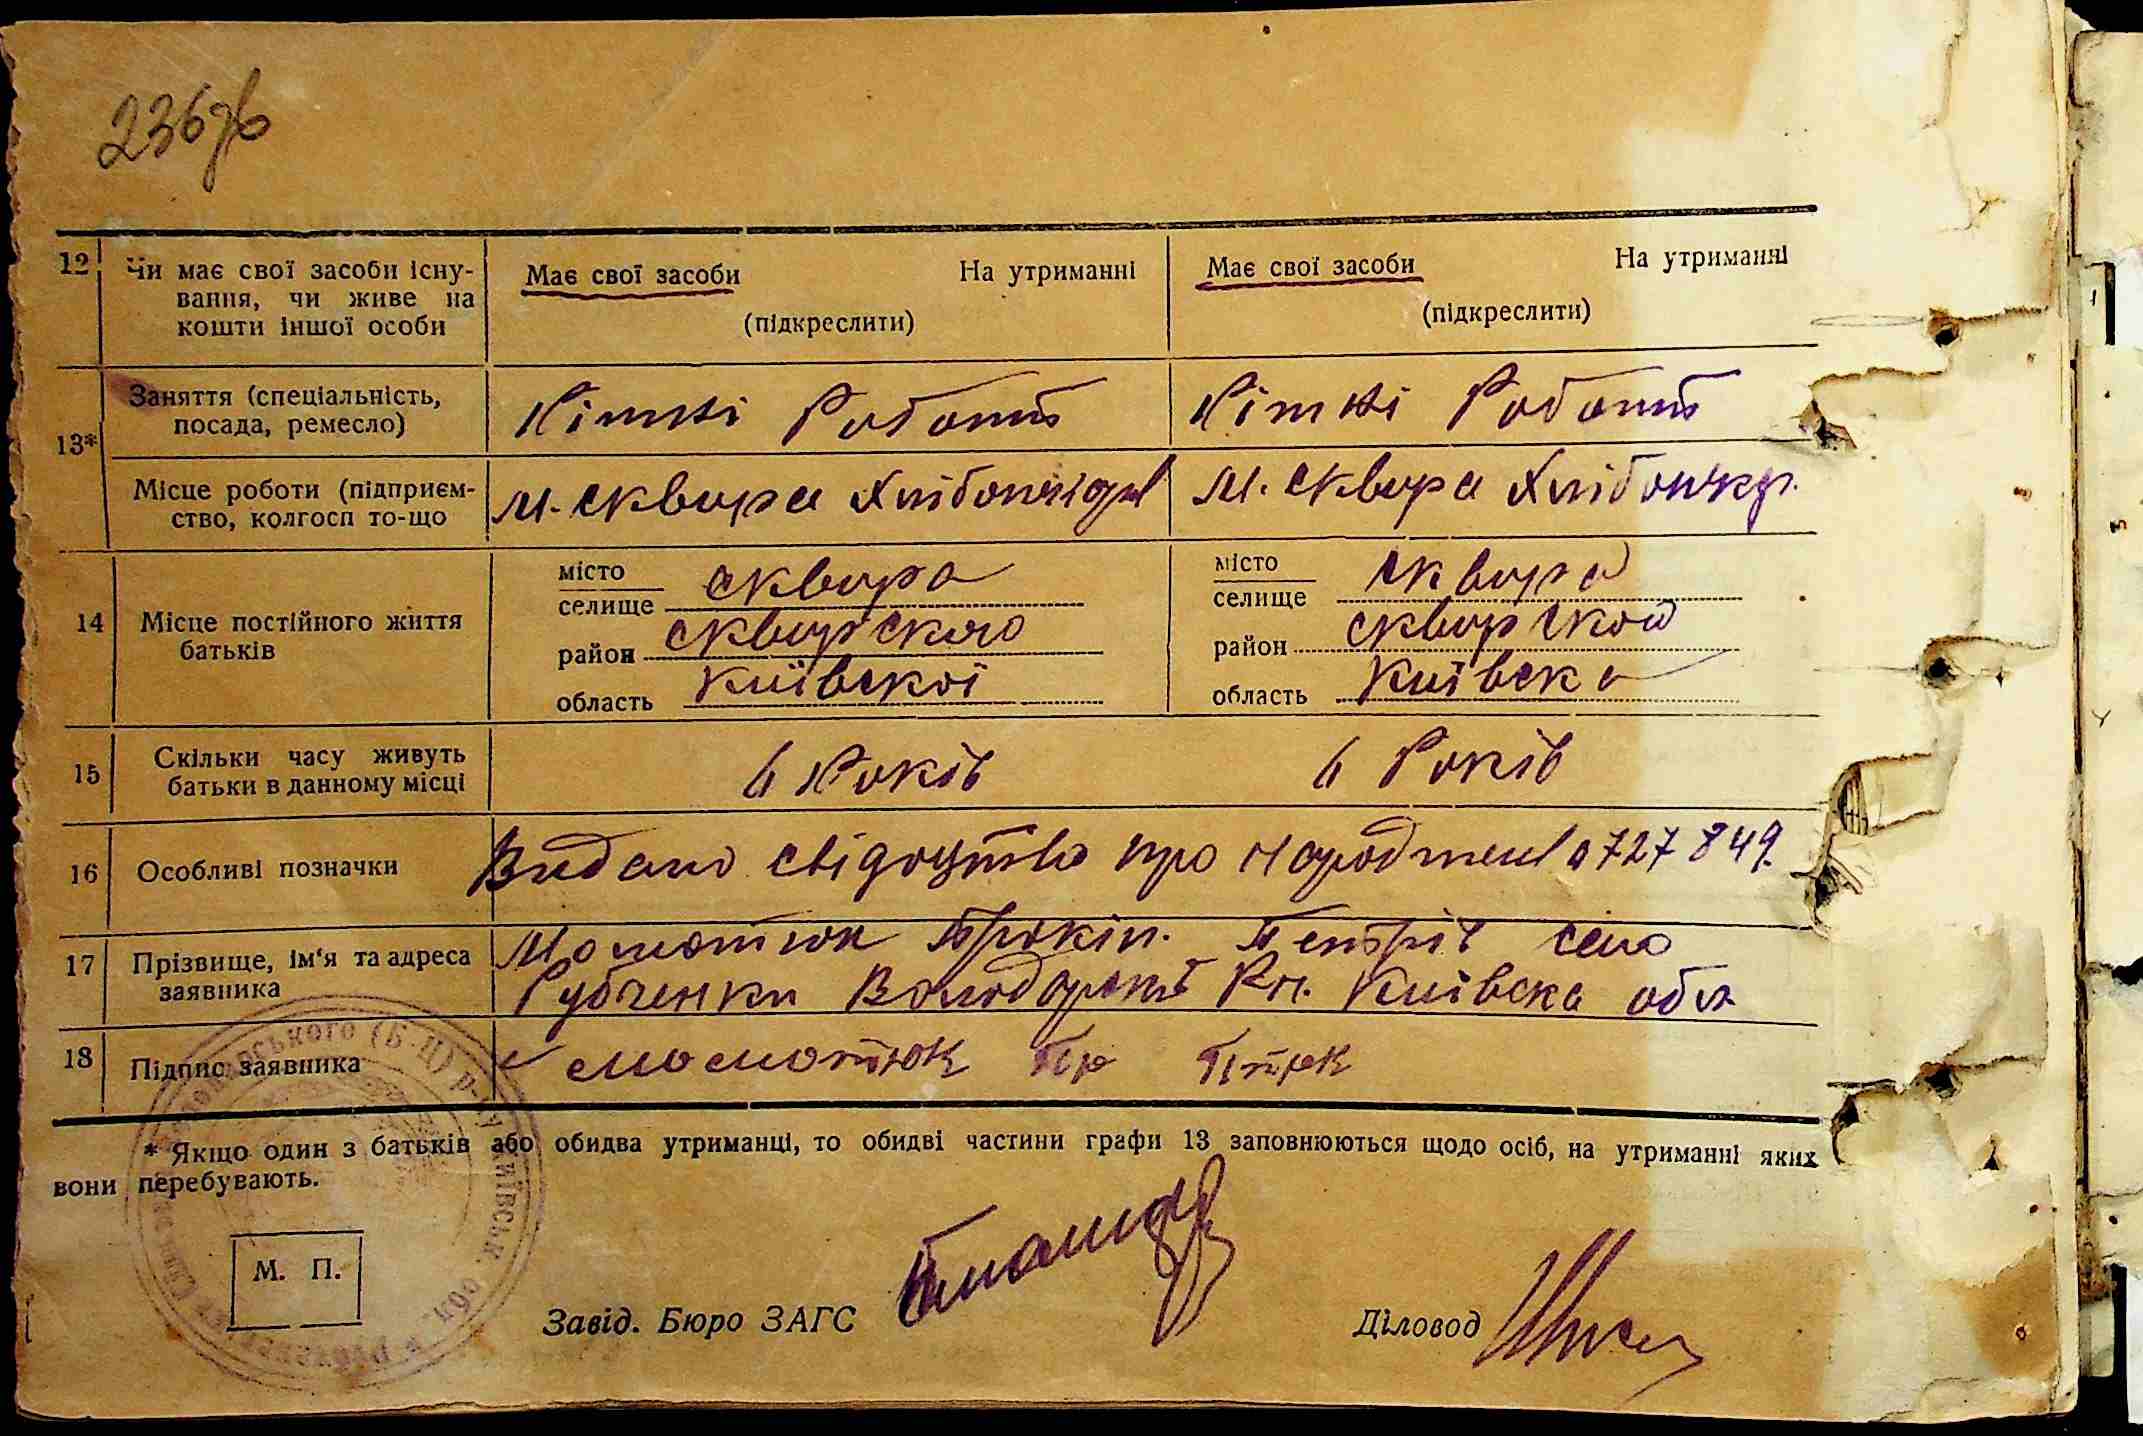 236
12
Чи має свої засоби існу-
вання, чи живе на
кошти іншої особи
Має свої засоби На утриманні
(підкреслити)
Має свої засоби На утриманні
(підкреслити)
13*
Заняття (спеціальність,
посада, ремесло)
Місце роботи (підприєм-
ство, колгосп то-що
м. Сквира
м. Сквира
14
Місце постійного життя
батьків
місто
селище Сквира
район Сквирского
область Київскої
місто
селище Сквира
район
область Київска
15
Скільки часу живуть
батьки в данному місці
6 Років
6 Років
16
Особливі позначки
Видано свідоцтво про 727849.
17
Прізвище, ім'я та адреса
заявника
Момотюк село
Рубченки Рн. Київска обл
18
Підпис заявника
момотюк Пр
* Якщо один з батьків або обидва утриманці, то обидві частини графи 13 заповнюються щодо осіб, на утриманні яких
вони перебувають.
М. П.
Завід. Бюро ЗАГС
Діловод